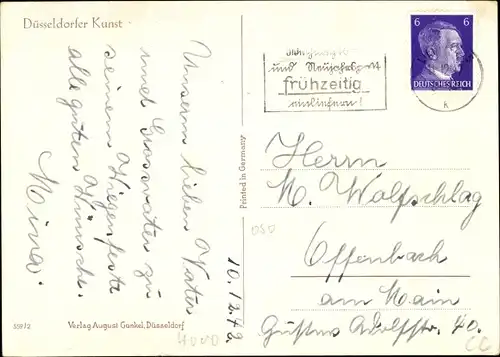 Düsseldorfer Kunst
Unserm lieben Vater
und Grossvater zu
seinem Wiegenfeste
alle guten Wünsche.
Mina.
10.12.42
559/2
Verlag August Gunkel, Düsseldorf
4000
Printed in Germany
und Neujahrspost
frühzeitig
einliefern!
k
6 6
DEUTSCHES REICH
Herrn
M. Wolfschlag
Offenbach
am Main
Gustav Adolfstr. 40.